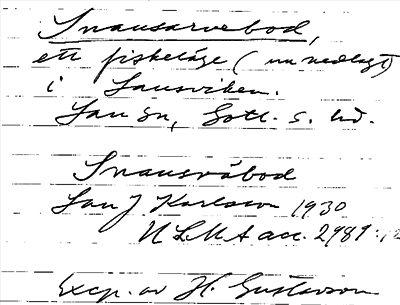 Snausarvebod,
ett fiskeläge (nu nedlagt)
i Lausviken.
Lau sn, Gotl. s. hd.
Snausväbod
Lau J Karlsson 1930
ULMA acc. 2987:12
Excp. av H. Gustavson